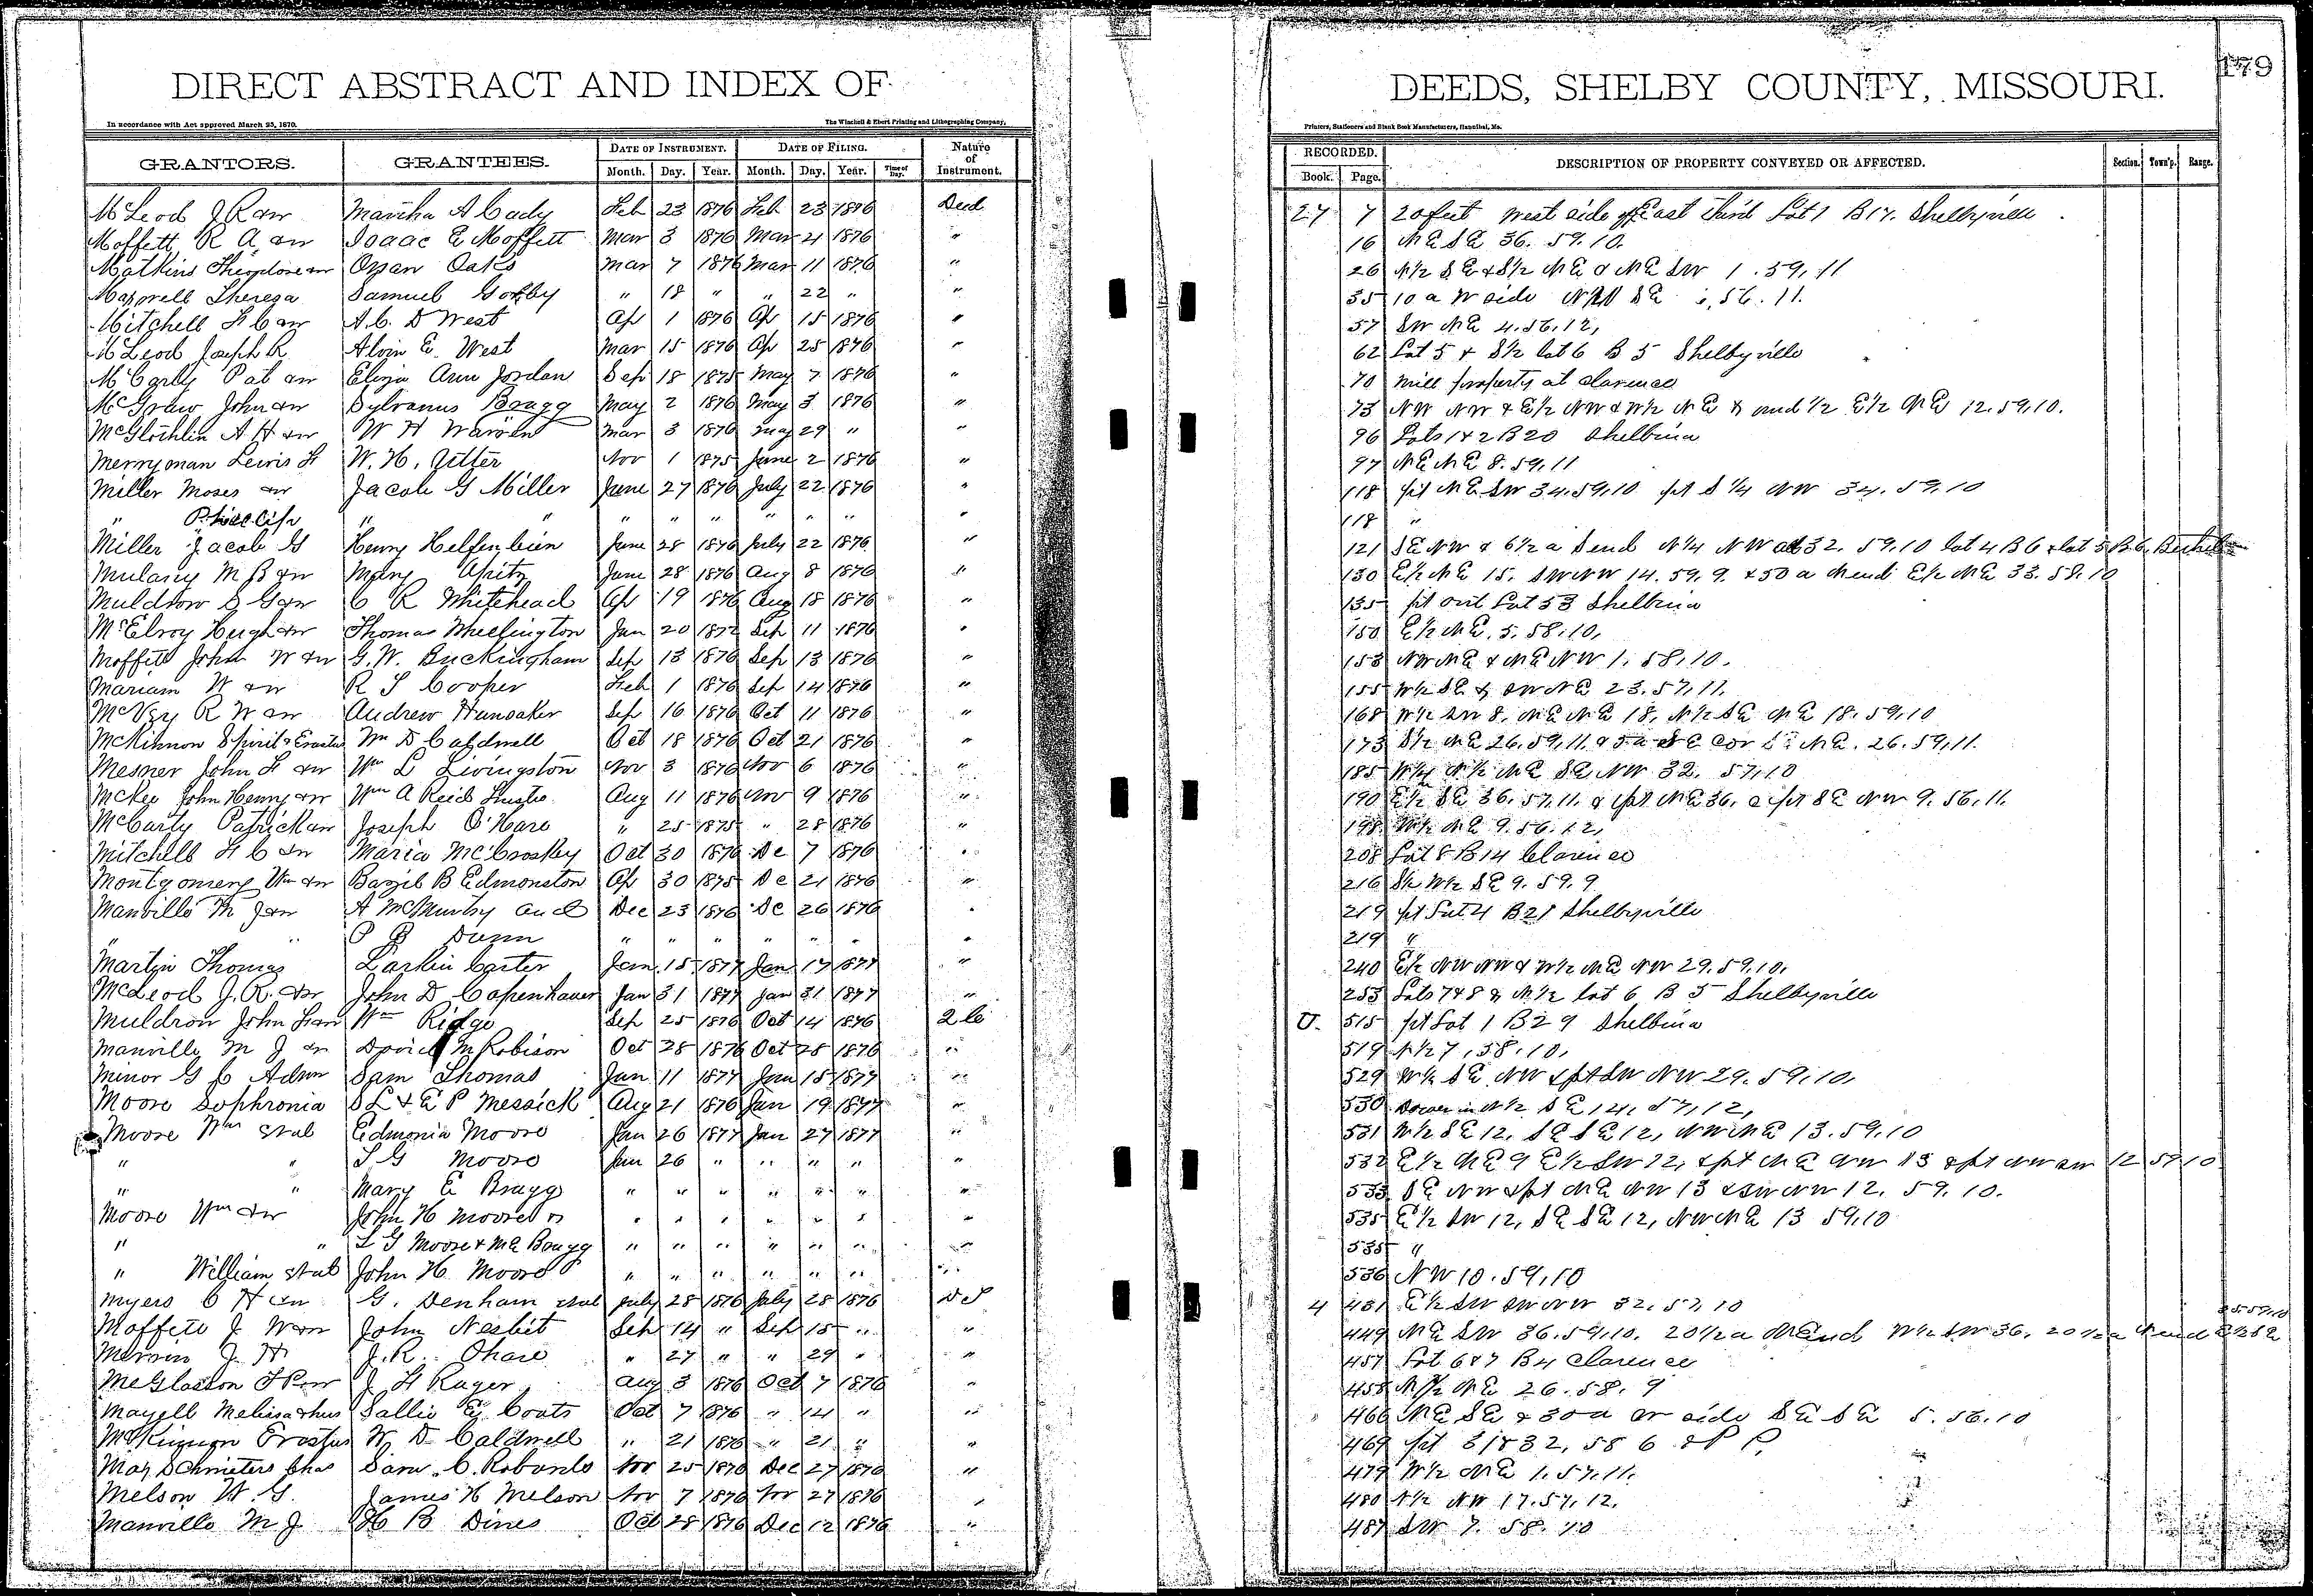 179
DIRECT ABSTRACT AND INDEX OF DEEDS, SHELBY COUNTY, MISSOURI.
In accordance with Act approved March 25, 1870. The Winchell & Ebert Printing and Lithographing Company, Printers, Stationers and Blank Book Manufacturers, Hannibal, Mo.
GRANTORS. GRANTEES. DATE OF INSTRUMENT. DATE OF FILING. Nature of Instrument. RECORDED. DESCRIPTION OF PROPERTY CONVEYED OR AFFECTED. Section. Town'p. Range.
Month. Day. Year. Month. Day. Year. Time of Day. Book. Page.
McLeod J R & w Martha A Cady Feb 23 1876 Feb 23 1876 Deed 27 7 20 feet West side of East third Lot 1 B 17. Shelbyville
Moffett R A & w Isaac E Moffett Mar 3 1876 Mar 4 1876 " 16 NE SE 36. 59. 10.
Matkins Theoplore & w Oran Oaks Mar 7 1876 Mar 11 1876 " 26 N½ SE & S½ NE & NE SW 1. 59, 11
Maxwell Theresa Samuel Gorby " 18 " " 22 " " 35 10 a W side NW SE 56. 11.
Mitchell H C & w A. C. D West Ap 1 1876 Ap 15 1876 " 57 SW NE 4. 56. 12,
McLeod Joseph R Alvin E. West Mar 15 1876 Ap 25 1876 " 62 Lot 5 & S½ lot 6 B 5 Shelbyville
McCarty Pat & w Eliza Ann Jordan Sep 18 1875 May 7 1876 " 70 Mill property at Clarence
McGraw John & w Sylvanus Bragg May 2 1876 May 3 1876 " 73 NW NW & E½ NW & W½ NE & und ½ E½ NE 12. 59, 10.
McGlothlin A H & w W H Warren Mar 3 1876 May 29 " " 96 Lots 1 & 2 B 20 Shelbina
Merryman Lewis H W. H. Utter Nov 1 1875 June 2 1876 " 97 NE NE 8. 59, 11
Miller Moses & w Jacob G Miller June 27 1876 July 22 1876 " 118 pt NE SW 34. 59, 10 pt S ¼ NW 34. 59, 10
" Phillip " " " " " " " " " 118 "
Miller Jacob G Henry Helfenbein June 28 1876 July 22 1876 " 121 SE NW & 6½ a S end N¼ NW 32. 59, 10 lot 4 B 6 & lot 5 B 6, Bethel
Mulany M B & w Mary June 28 1876 Aug 8 1876 " 130 E½ NE 15. SW NW 14. 59, 9. & 50 a N end E½ NE 33. 58. 10
Muldrow S G & w C R Whitehead Ap 19 1876 Aug 18 1876 " 135 pt out Lot 53 Shelbina
McElroy Hugh & w Thomas Whellington Jan 20 1872 Sep 11 1876 " 150 E½ NE, 5, 58, 10,
Moffett John W & w G. W. Buckingham Sep 13 1876 Sep 13 1876 " 153 NW NE & NE NW 1, 58, 10.
Mariam W & w R S Cooper Feb 1 1876 Sep 14 1876 " 155 W½ SE & SW NE 23. 57, 11.
McVey R W & w Andrew Hunsaker Sep 16 1876 Oct 11 1876 " 168 W½ SW 8, NE NE 18, N½ SE NE 18. 59, 10
McKinnon Spirit & Erastus Wm D Caldwell Oct 18 1876 Oct 21 1876 " 173 S½ NE 26. 59, 11. & 5 a SE cor NE. 26. 59, 11.
Mesner John H & w Wm L Livingston Nov 3 1876 Nov 6 1876 " 185 N½ NE SE NW 32. 57, 10
McKee John Henry & w Wm A Reid Trustee Aug 11 1876 Nov 9 1876 " 190 E½ SE 36. 57, 11. & pt NE 36. & pt SE NW 9. 56, 11.
McCarty Patrick & w Joseph O'Hare " 25 1875 " 28 1876 " 198 W½ NE 9. 56. 12,
Mitchell H C & w Maria McCroskey Oct 30 1876 De 7 1876 " 208 Lot 8 B 14 Clarence
Montgomery Wm & w Bazil B Edmonston Ap 30 1875 De 21 1876 " 216 S½ W½ SE 9. 59. 9
Manville M J & w A McMurtry and Dec 23 1876 De 26 1876 " 219 pt Lot 4 B 21 Shelbyville
" " P B Dunn " " " " " " " 219 "
Martin Thomas Larkin Carter Jan 15 1877 Jan 17 1877 " 240 E½ NW NW & W½ NE NW 29. 59. 10.
McLeod J. R. & w John D Copenhaver Jan 31 1877 Jan 31 1877 " 253 Lots 7 & 8 & N½ lot 6 B 5 Shelbyville
Muldrow John H & w Wm Ridge Sep 25 1876 Oct 14 1876 2 C U. 515 pt Lot 1 B 29 Shelbina
Manville M J & w David M Robison Oct 28 1876 Oct 28 1876 " 519 N½ 7, 58, 10,
Minor G C Admr Sam Thomas Jan 11 1877 Jan 15 1877 " 529 W½ SE NW & pt SW NW 29. 59, 10,
Moore Sophronia S L & E P Messick Aug 21 1876 Jan 19 1877 " 530 Dower in N½ SE 14, 57, 12,
Moore Wm et al Edmonia Moore Jan 26 1877 Jan 27 1877 " 531 W½ SE 12, SE SE 12, NW NE 13. 59, 10
" " L G Moore Jan 26 " " " " " 532 E½ NE 9 E½ SW 12, & pt NE NW 13 & pt NW SW 12 59 10
" " Mary E Bragg " " " " " " " 533 SE NW & pt NE NW 13 & SW NW 12. 59, 10.
Moore Wm & w John H Moore " " " " " " " 535 E½ SW 12, SE SE 12, NW NE 13 59, 10
" " L G Moore & M E Bragg " " " " " " " 535 "
" William et al John H Moore " " " " " " " 536 NW 10. 59, 10
Myers C H & w G. Denham et al July 28 1876 July 28 1876 D T 4 431 E½ SW SW NW 32. 57, 10
Moffett J W & w John Nesbit Sep 14 " Sep 15 " " 449 NE SW 36. 59, 10. 20½ a N end W½ SW 36. 20½ a N end E½ SE
J H J. R. Ohare " 27 " " 29 " " 457 Lot 6 & 7 B 4 Clarence
McGlasson & w J H Rager Aug 3 1876 Oct 7 1876 " 458 N½ NE 26. 58. 9
Mayell Melissa & hus Sallie E Coats Oct 7 1876 " 14 " " 466 NE SE & 30 a W side SE SE 5. 56. 10
McKinnon Erastus W D Caldwell " 21 1876 " 21 " " 469 pt 31 & 32, 58 6 & P P,
Chas Sam. C. Robards Nov 25 1876 Dec 27 1876 " 479 W½ NE 1. 57, 11.
Melson W. G. James H Melson Nov 7 1876 Nov 27 1876 " 480 N½ NW 17. 57, 12.
Manville M J H B Dines Oct 28 1876 Dec 12 1876 " 487 SW 7. 58. 10